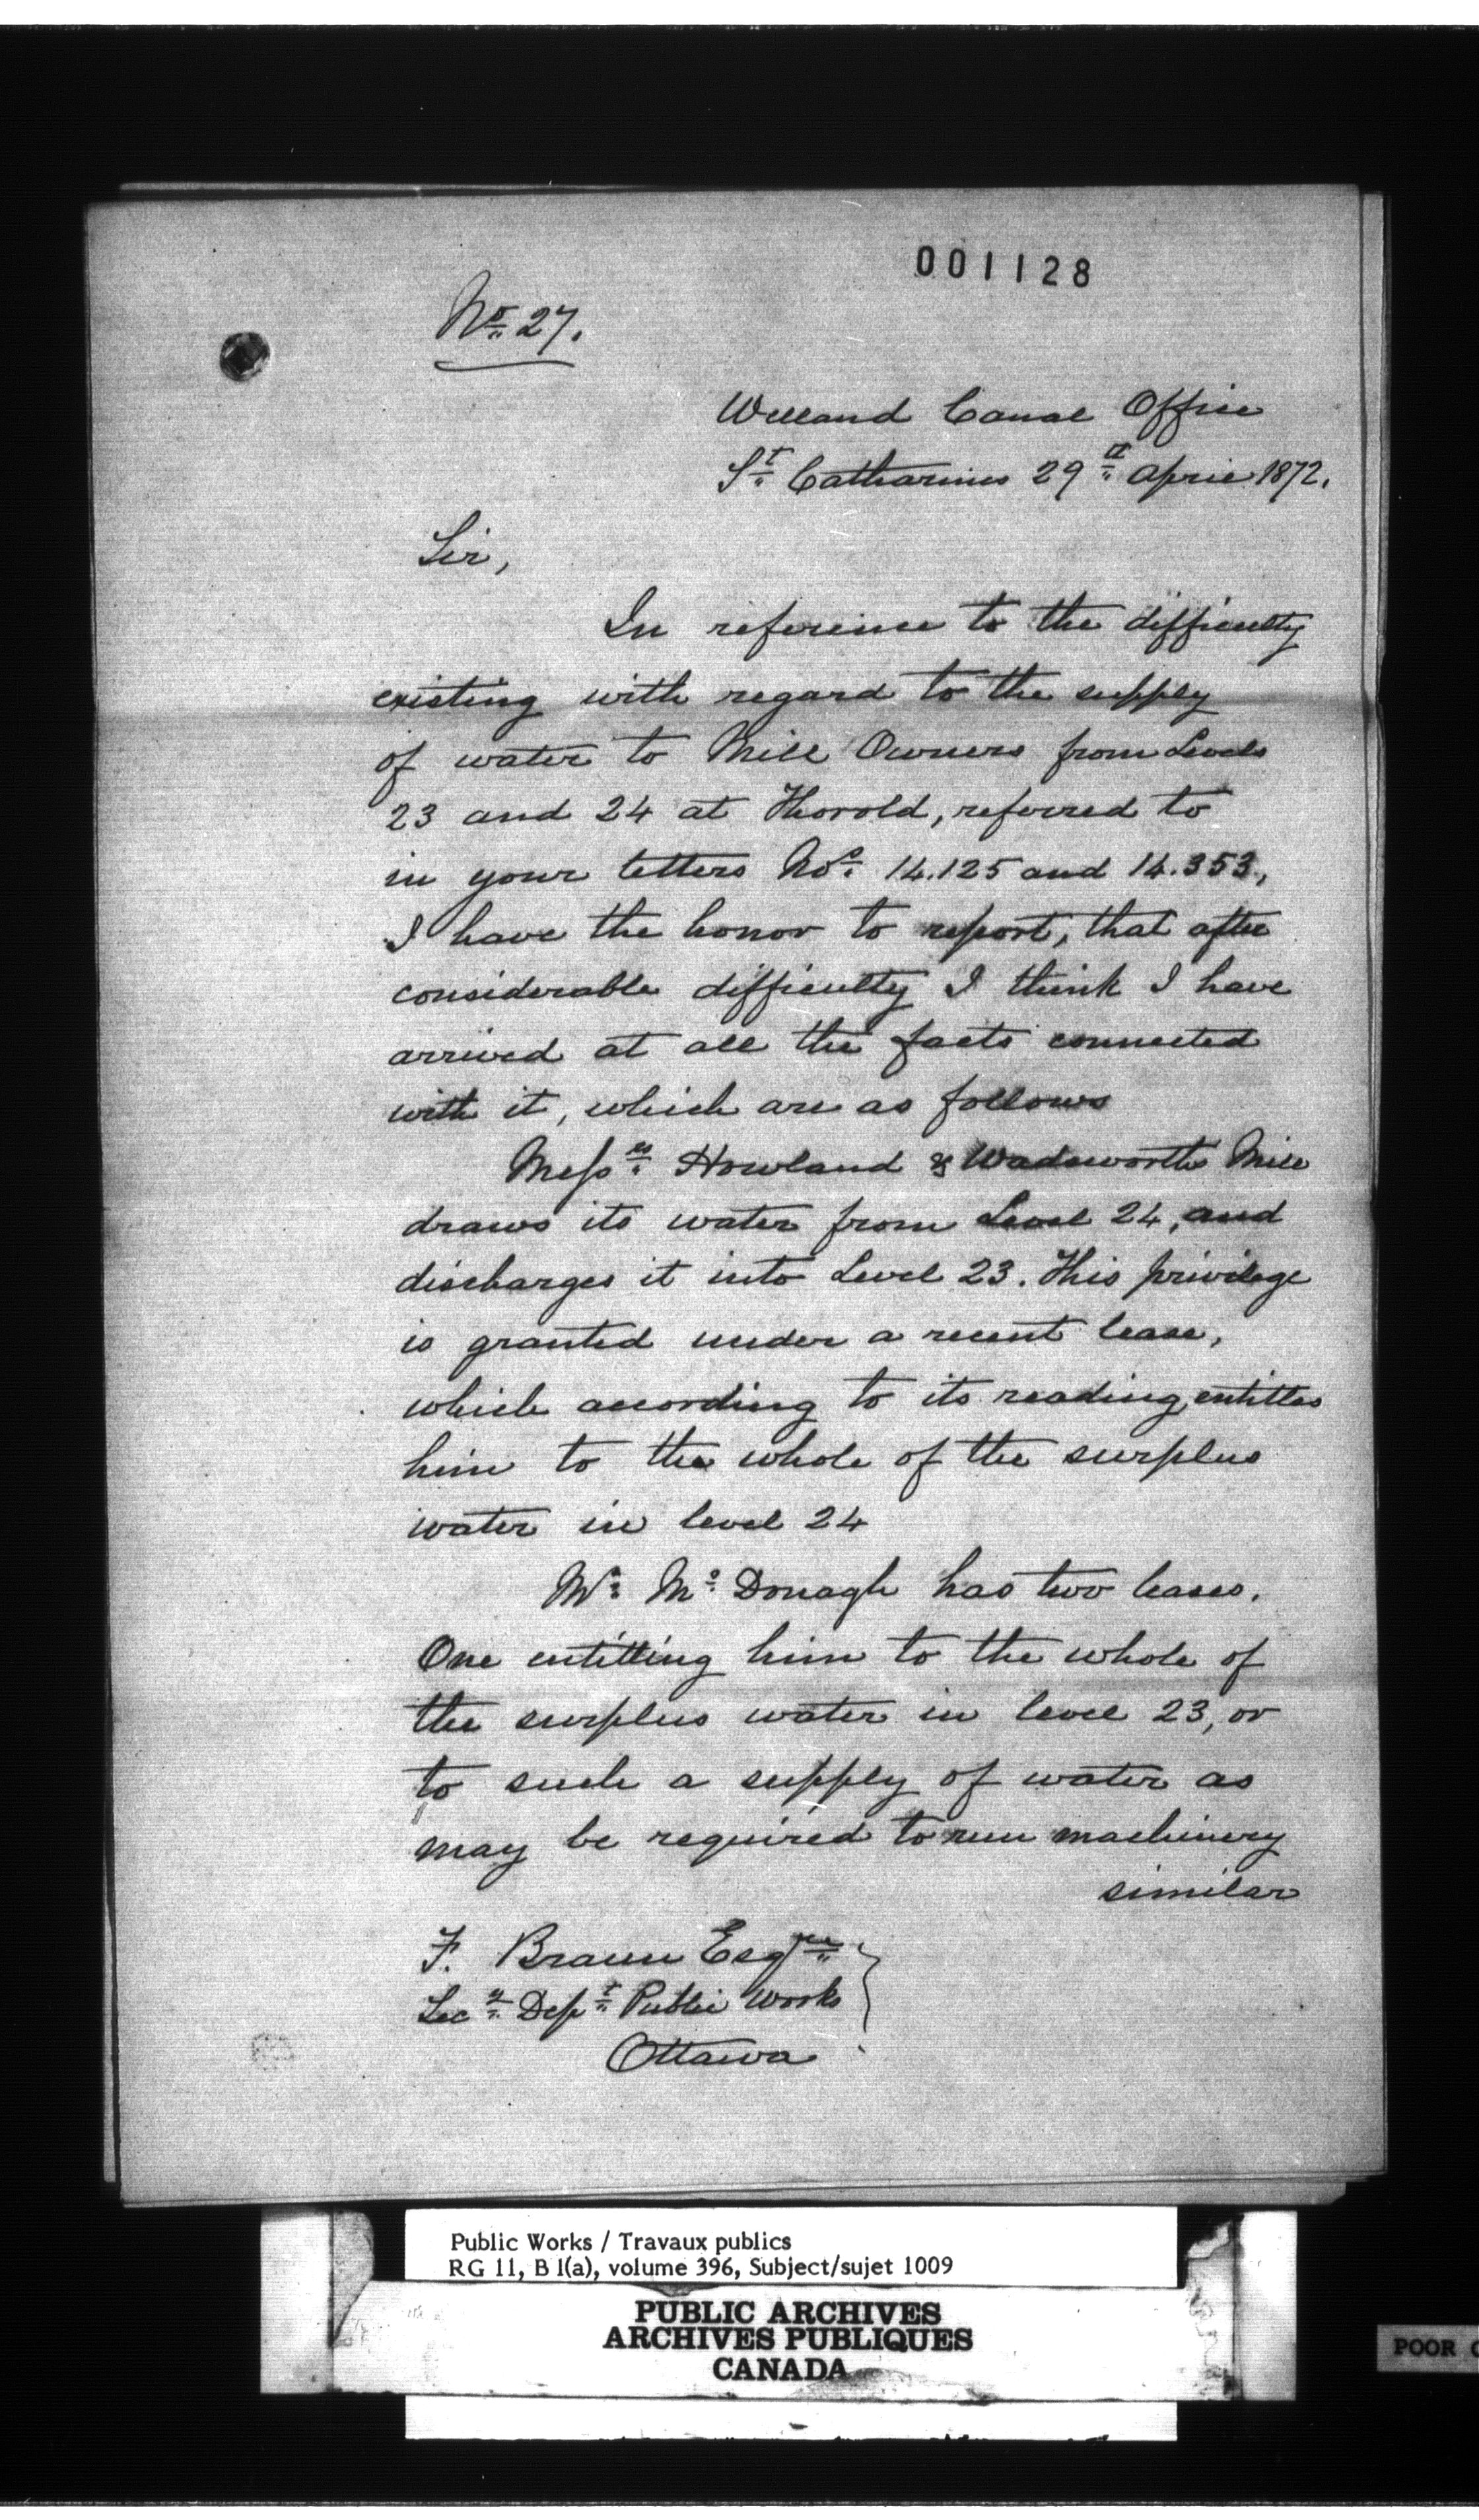 001128
No 27.
Welland Canal Office
St Catharines 29th April 1872.
Sir,
In reference to the difficulty
existing with regard to the supply
of water to Mill Owners from Levels
23 and 24 at Thorold, referred to
in your letters Nos. 14.125 and 14.353,
I have the honor to report, that after
considerable difficulty I think I have
arrived at all the facts connected
with it, which are as follows
Messrs Howland & Wadsworths Mill
draws its water from Level 24, and
discharges it into Level 23. This privilege
is granted under a recent lease,
which according to its reading, entitles
him to the whole of the surplus
water in level 24
Mr McDonagh has two leases.
One entitling him to the whole of
the surplus water in level 23, or
to such a supply of water as
may be required to run machinery
similar
F. Braun Esqre
Secy Dept Public Works
Ottawa
Public Works / Travaux publics
RG 11, B 1(a), volume 396, Subject/sujet 1009
PUBLIC ARCHIVES
ARCHIVES PUBLIQUES
CANADA
POOR